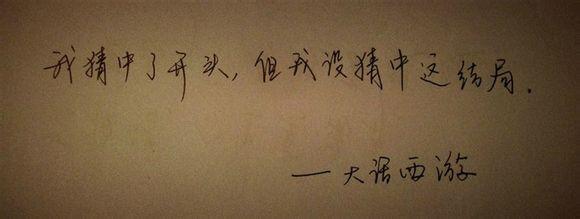 我猜中了开头,但我没猜中这结局.
——大话西游